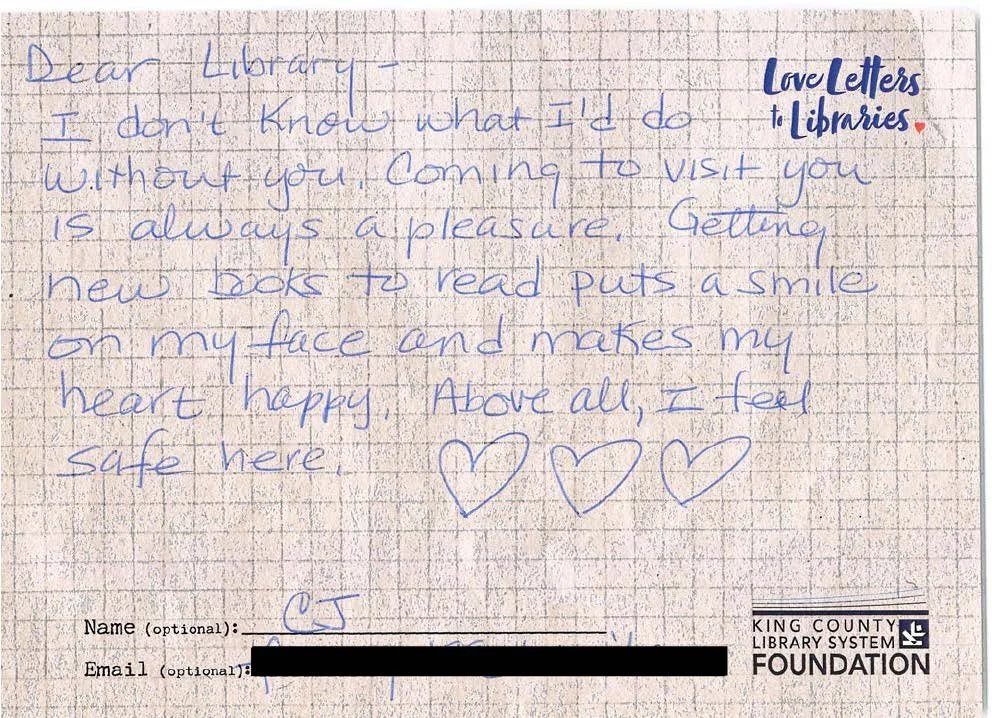 Dear Library -
Love Letters
to Libraries.
I don't know what I'd do
without you. Coming to visit you
is always a pleasure. Getting
new books to read puts a smile
on my face and makes my
heart happy. Above all, I feel
safe here. ♡ ♡ ♡
Name (optional): CJ
Email (optional):
KING COUNTY
LIBRARY SYSTEM
FOUNDATION